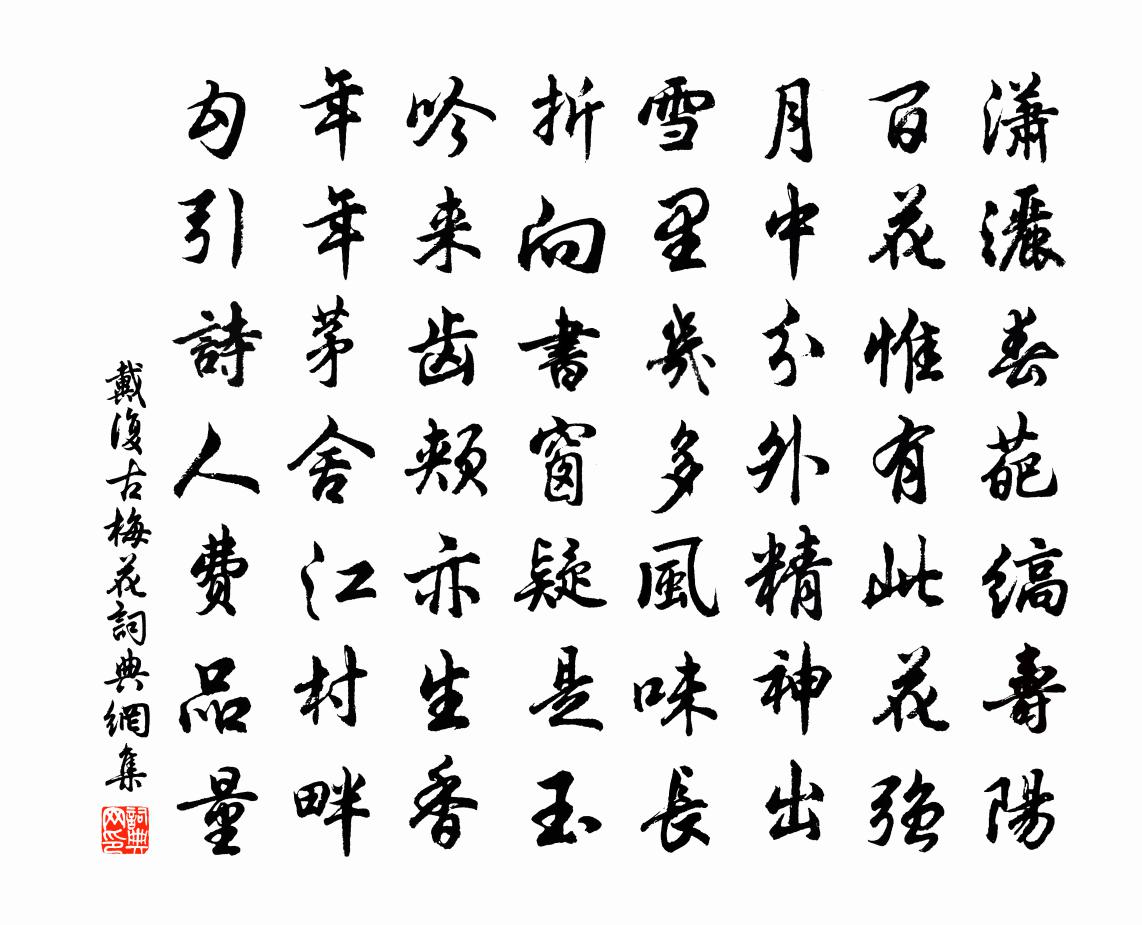 瀟灑春葩縞壽陽
百花惟有此花強
月中分外精神出
雪里幾多風味長
折向書窗疑是玉
吟來齒頰亦生香
年年茅舍江村畔
勾引詩人費品量
戴復古梅花詞典網集
詞典网印